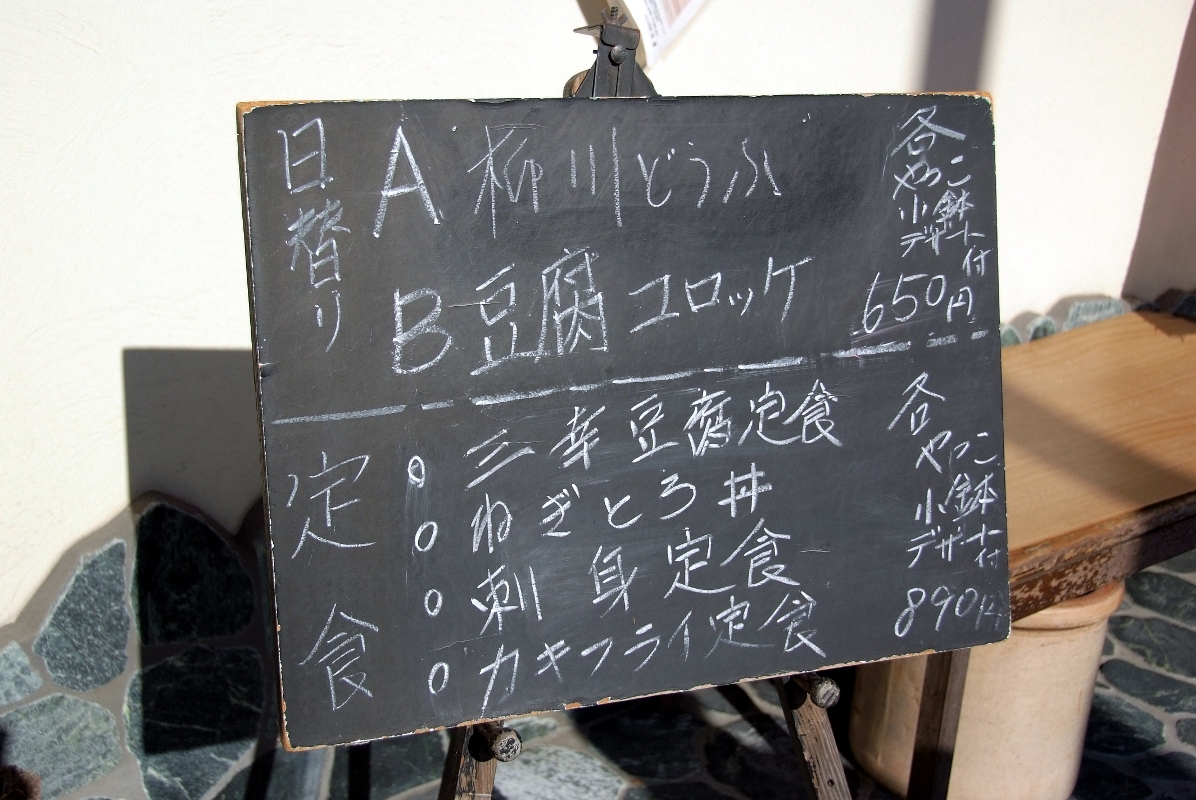 日替り
A 柳川どうふ
B 豆腐コロッケ
各
やっこ
小鉢
デザート付
650円
定食
。三幸豆腐定食
。ねぎとろ丼
。刺身定食
。カキフライ定食
各
やっこ
小鉢
デザート付
890円